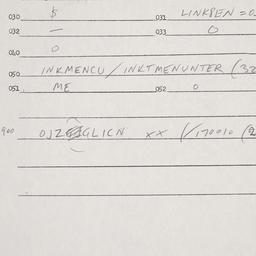 030 $ 031 LINKPEN = 0
032 — 033 0
040 0
050 INKMENCU / INKTMENUNTER (32
051 ME 052 0
900 OJZ GLICN XX (/170010 (2